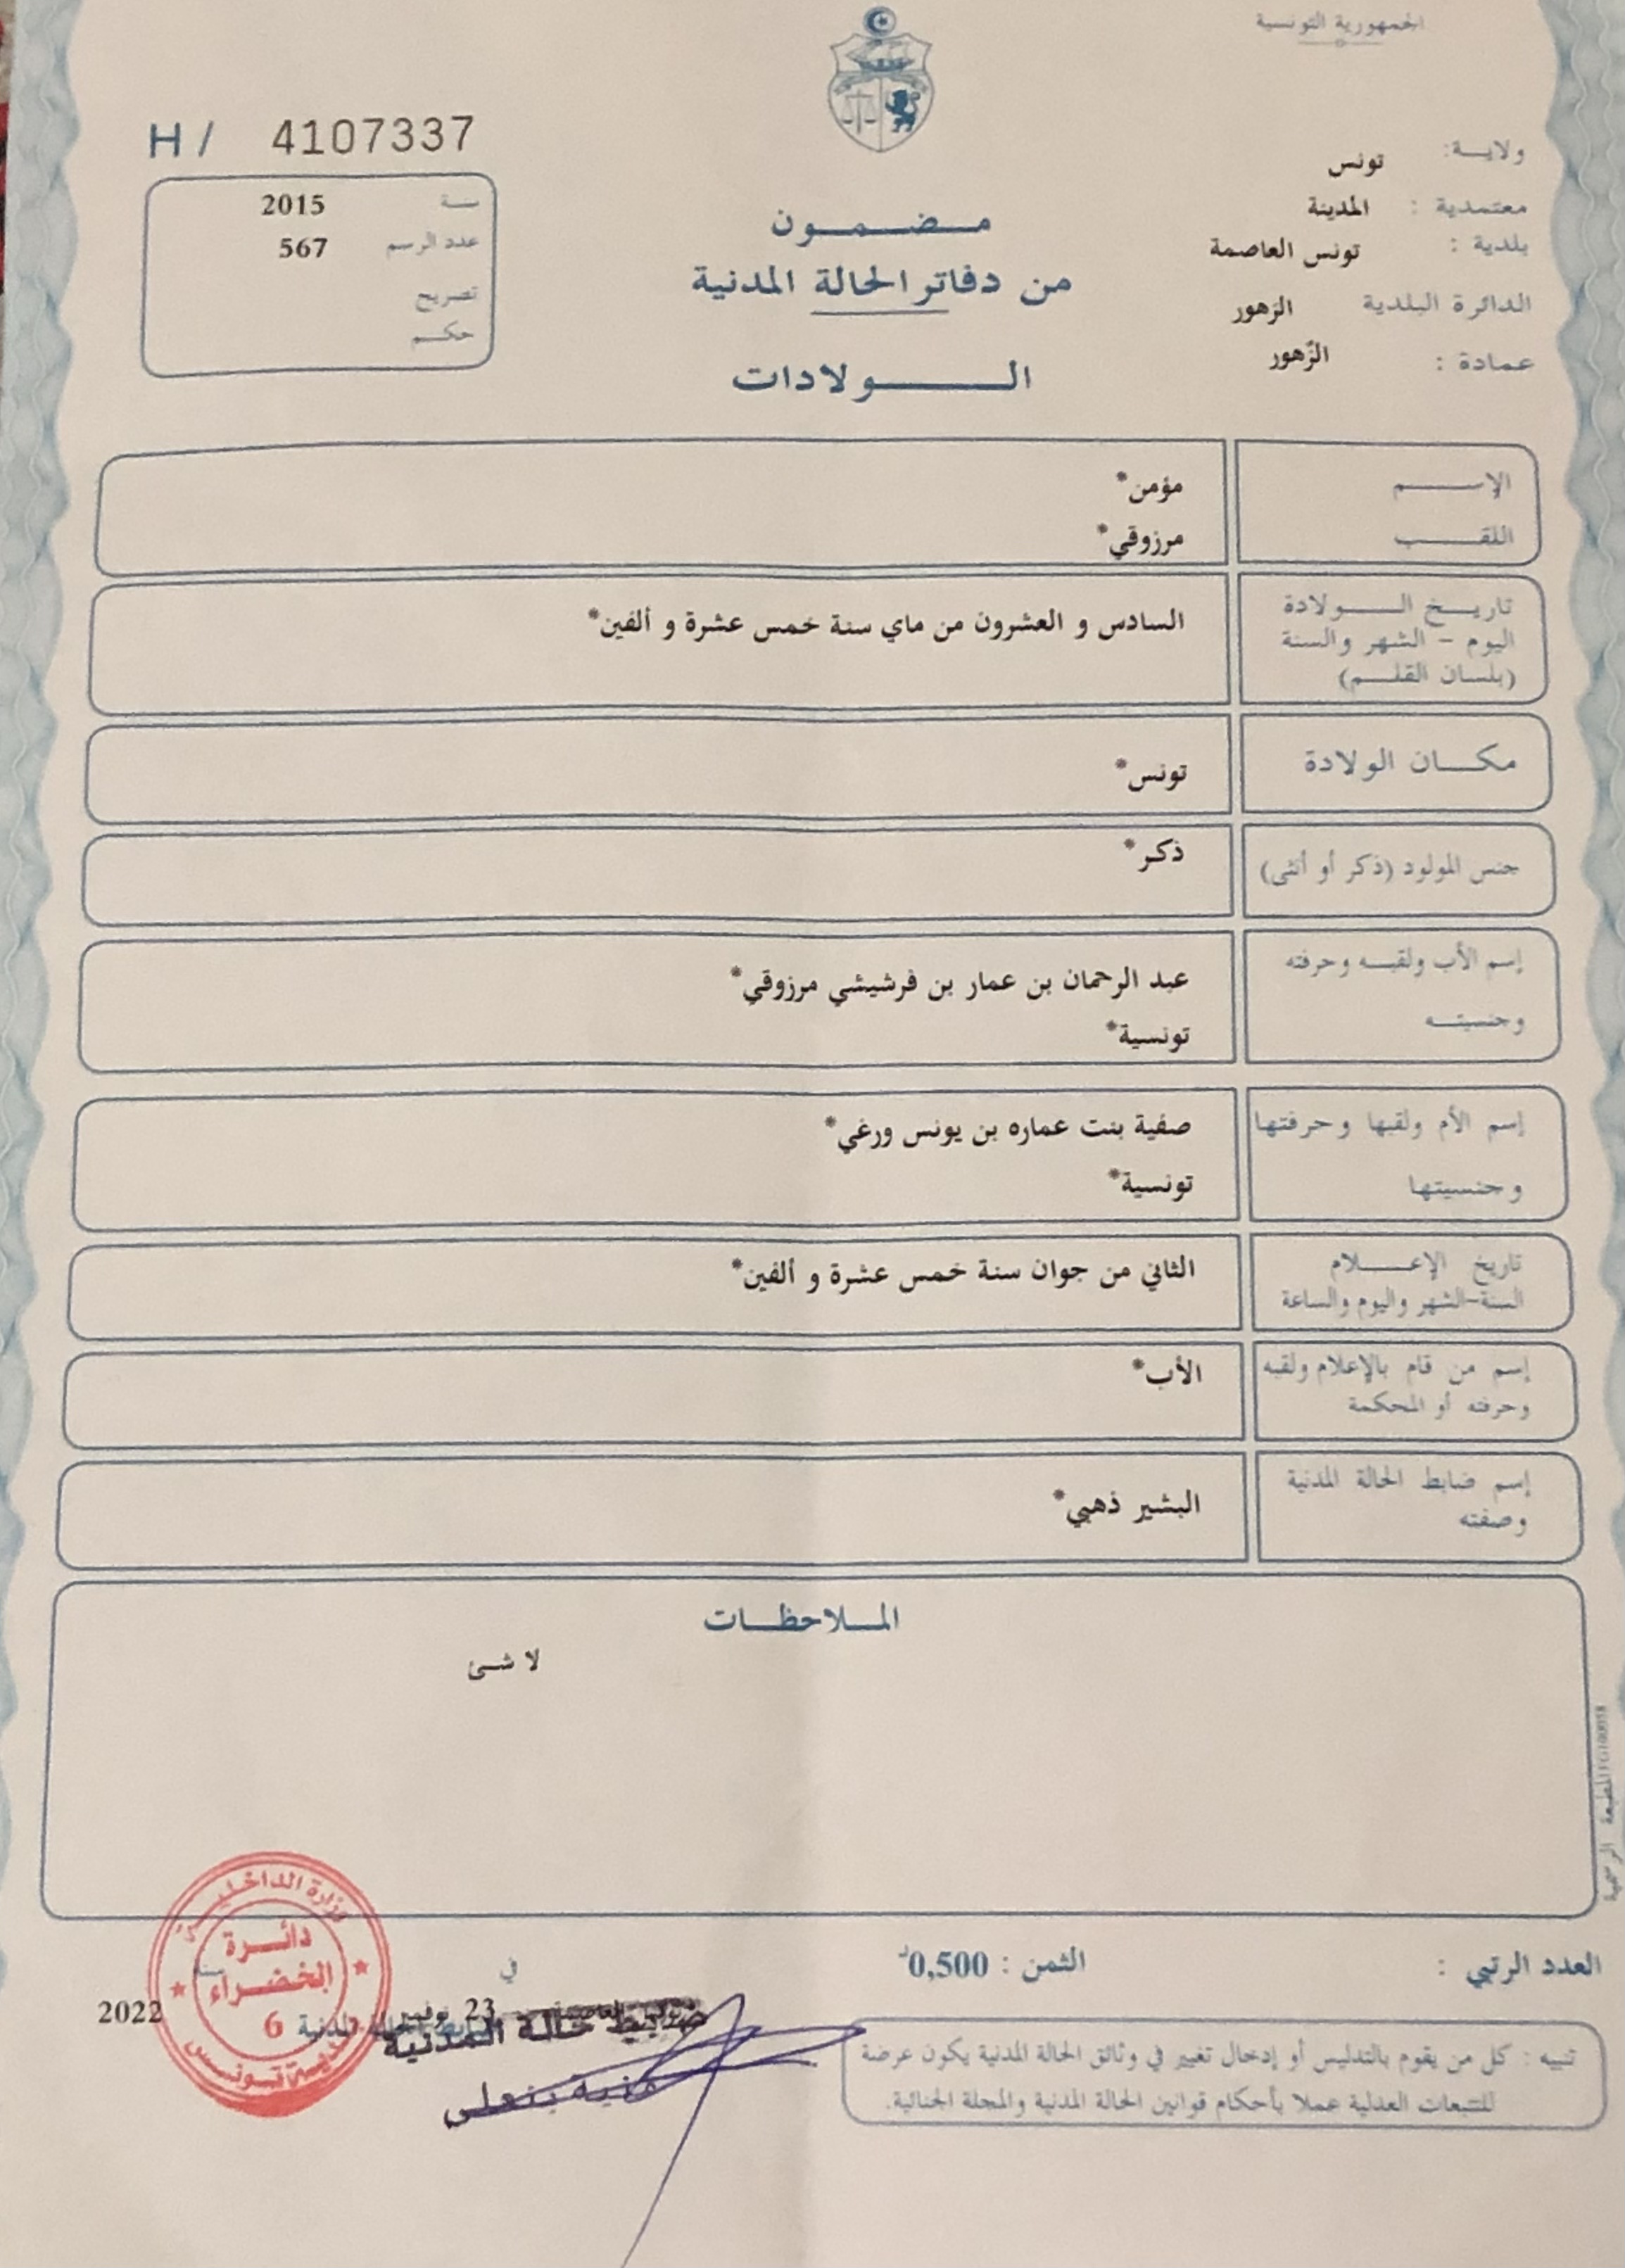 الجمهورية التونسية
ولاية: تونس
معتمدية : المدينة
بلدية : تونس العاصمة
الدائرة البلدية الزهور
عمادة : الزّهور
مضمون
من دفاتر الحالة المدنية
الولادات
H / 4107337
سنة 2015
عدد الرسم 567
تصريح
حكم
الإسم مؤمن*
اللقب مرزوقي*
تاريخ الولادة
اليوم - الشهر والسنة
(بلسان القلم)
السادس و العشرون من ماي سنة خمس عشرة و ألفين*
مكان الولادة تونس*
جنس المولود (ذكر أو أنثى) ذكر*
إسم الأب ولقبه وحرفته عبد الرحمان بن عمار بن فرشيشي مرزوقي*
وجنسيته تونسية*
إسم الأم ولقبها وحرفتها صفية بنت عماره بن يونس ورغي*
وجنسيتها تونسية*
تاريخ الإعلام
السنة-الشهر واليوم والساعة
الثاني من جوان سنة خمس عشرة و ألفين*
إسم من قام بالإعلام ولقبه
وحرفته أو المحكمة
الأب*
إسم ضابط الحالة المدنية
وصفته
البشير ذهبي*
الملاحظات
لا شئ
العدد الرتبي : الثمن : 0,500د
في
23 نوفمبر 2022
ضابط حالة المدنية
بنعلي
وزارة الداخلية
دائرة
الخضراء
6
بلدية تونس
تنبيه : كل من يقوم بالتدليس أو إدخال تغيير في وثائق الحالة المدنية يكون عرضة
للتتبعات العدلية عملا بأحكام قوانين الحالة المدنية والمجلة الجنائية.
المطبعة الرسمية